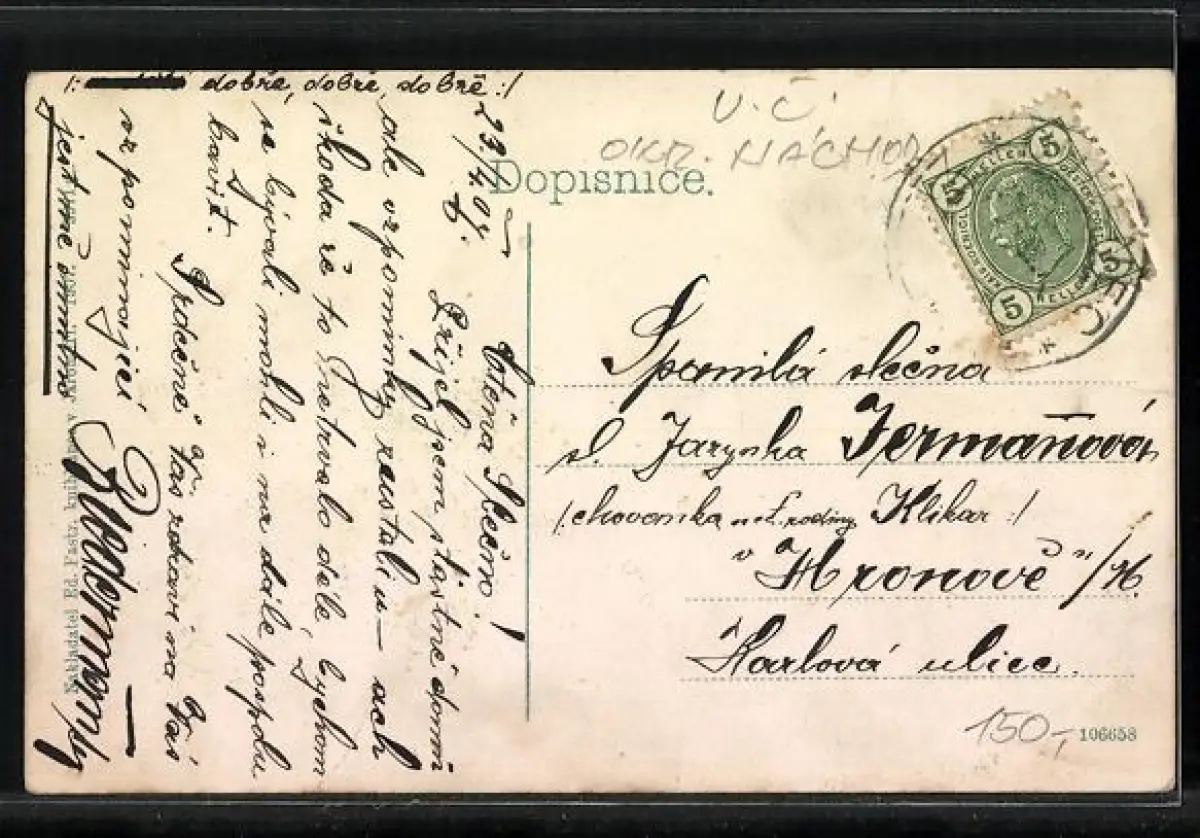 /: dobře, dobře, dobře :/
23/4 07.
Ctěná Slečno!
Přijel jsem šťastně domů
ale vzpomínky zůstali u — ach
škoda že to netrvalo déle, bychom
se bývali mohli i na dále pospolu
bavit.
„Srdečně" Vás zdraví na Vás
vzpomínající
jest mě smutno
Nakladatel Ed. Fastr, knihkupec
1907.
Dopisnice.
U.Č.
OKR. NÁCHOD
5
5
5
5
HELLER
HELLER
EC
Spanilá slečna
sl. Jarynka Jermářová
/: chovanka rodiny Klikar :/
v „Hronově"/M.
Karlova ulice.
150,-
106658